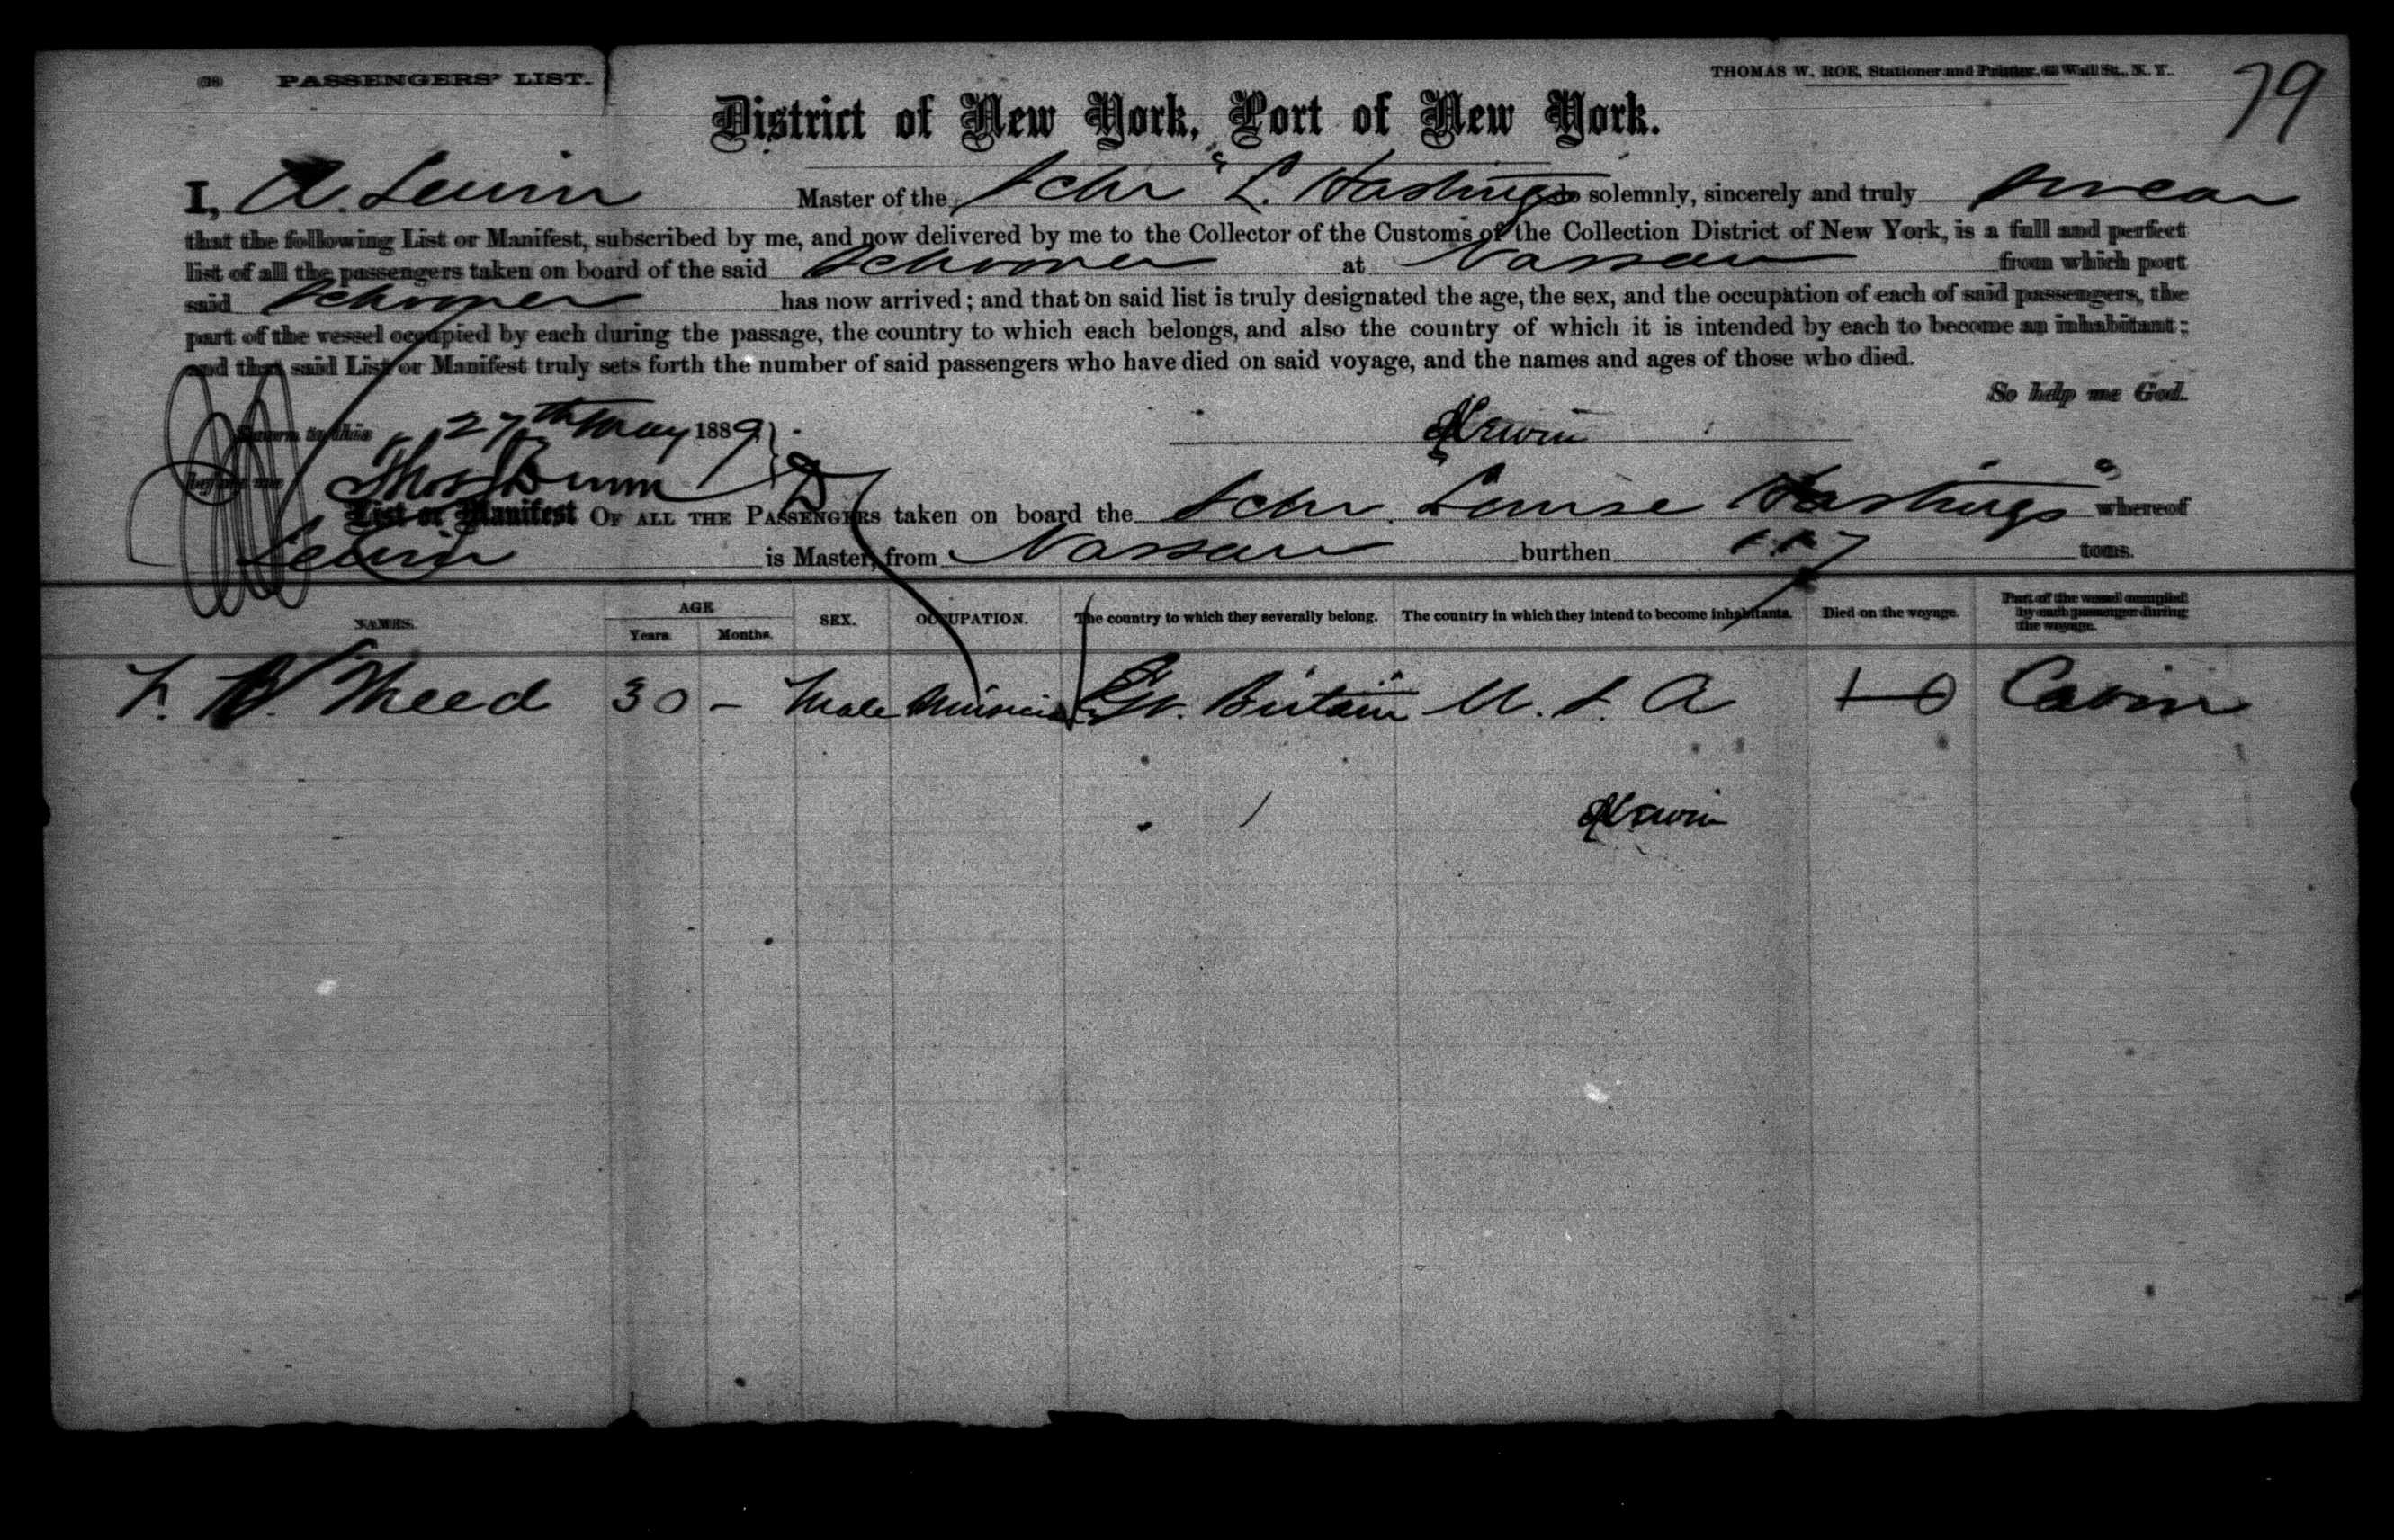 PASSENGERS' LIST.
THOMAS W. ROE, Stationer and Printer, Wall St., N. Y.
79
District of New York, Port of New York.
I, A. Lewin Master of the Schr "L. Hastings do solemnly, sincerely and truly swear
that the following List or Manifest, subscribed by me, and now delivered by me to the Collector of the Customs of the Collection District of New York, is a full and perfect
list of all the passengers taken on board of the said Schooner at Nassau from which port
said Schooner has now arrived; and that on said list is truly designated the age, the sex, and the occupation of each of said passengers, the
part of the vessel occupied by each during the passage, the country to which each belongs, and also the country of which it is intended by each to become an inhabitant;
and that said List or Manifest truly sets forth the number of said passengers who have died on said voyage, and the names and ages of those who died.
So help me God.
Sworn to this 27th May 1889
A Lewin
before me Thos Dunn
List or Manifest OF ALL THE PASSENGERS taken on board the Schr. Louise Hastings" whereof
Lewin is Master, from Nassau burthen tons.
NAMES. AGE Years. Months. SEX. OCCUPATION. The country to which they severally belong. The country in which they intend to become inhabitants. Died on the voyage. Part of the vessel occupied by each passenger during the voyage.
Meed 30 - Male Gt. Britain U. S. A Cabin
A Lewin